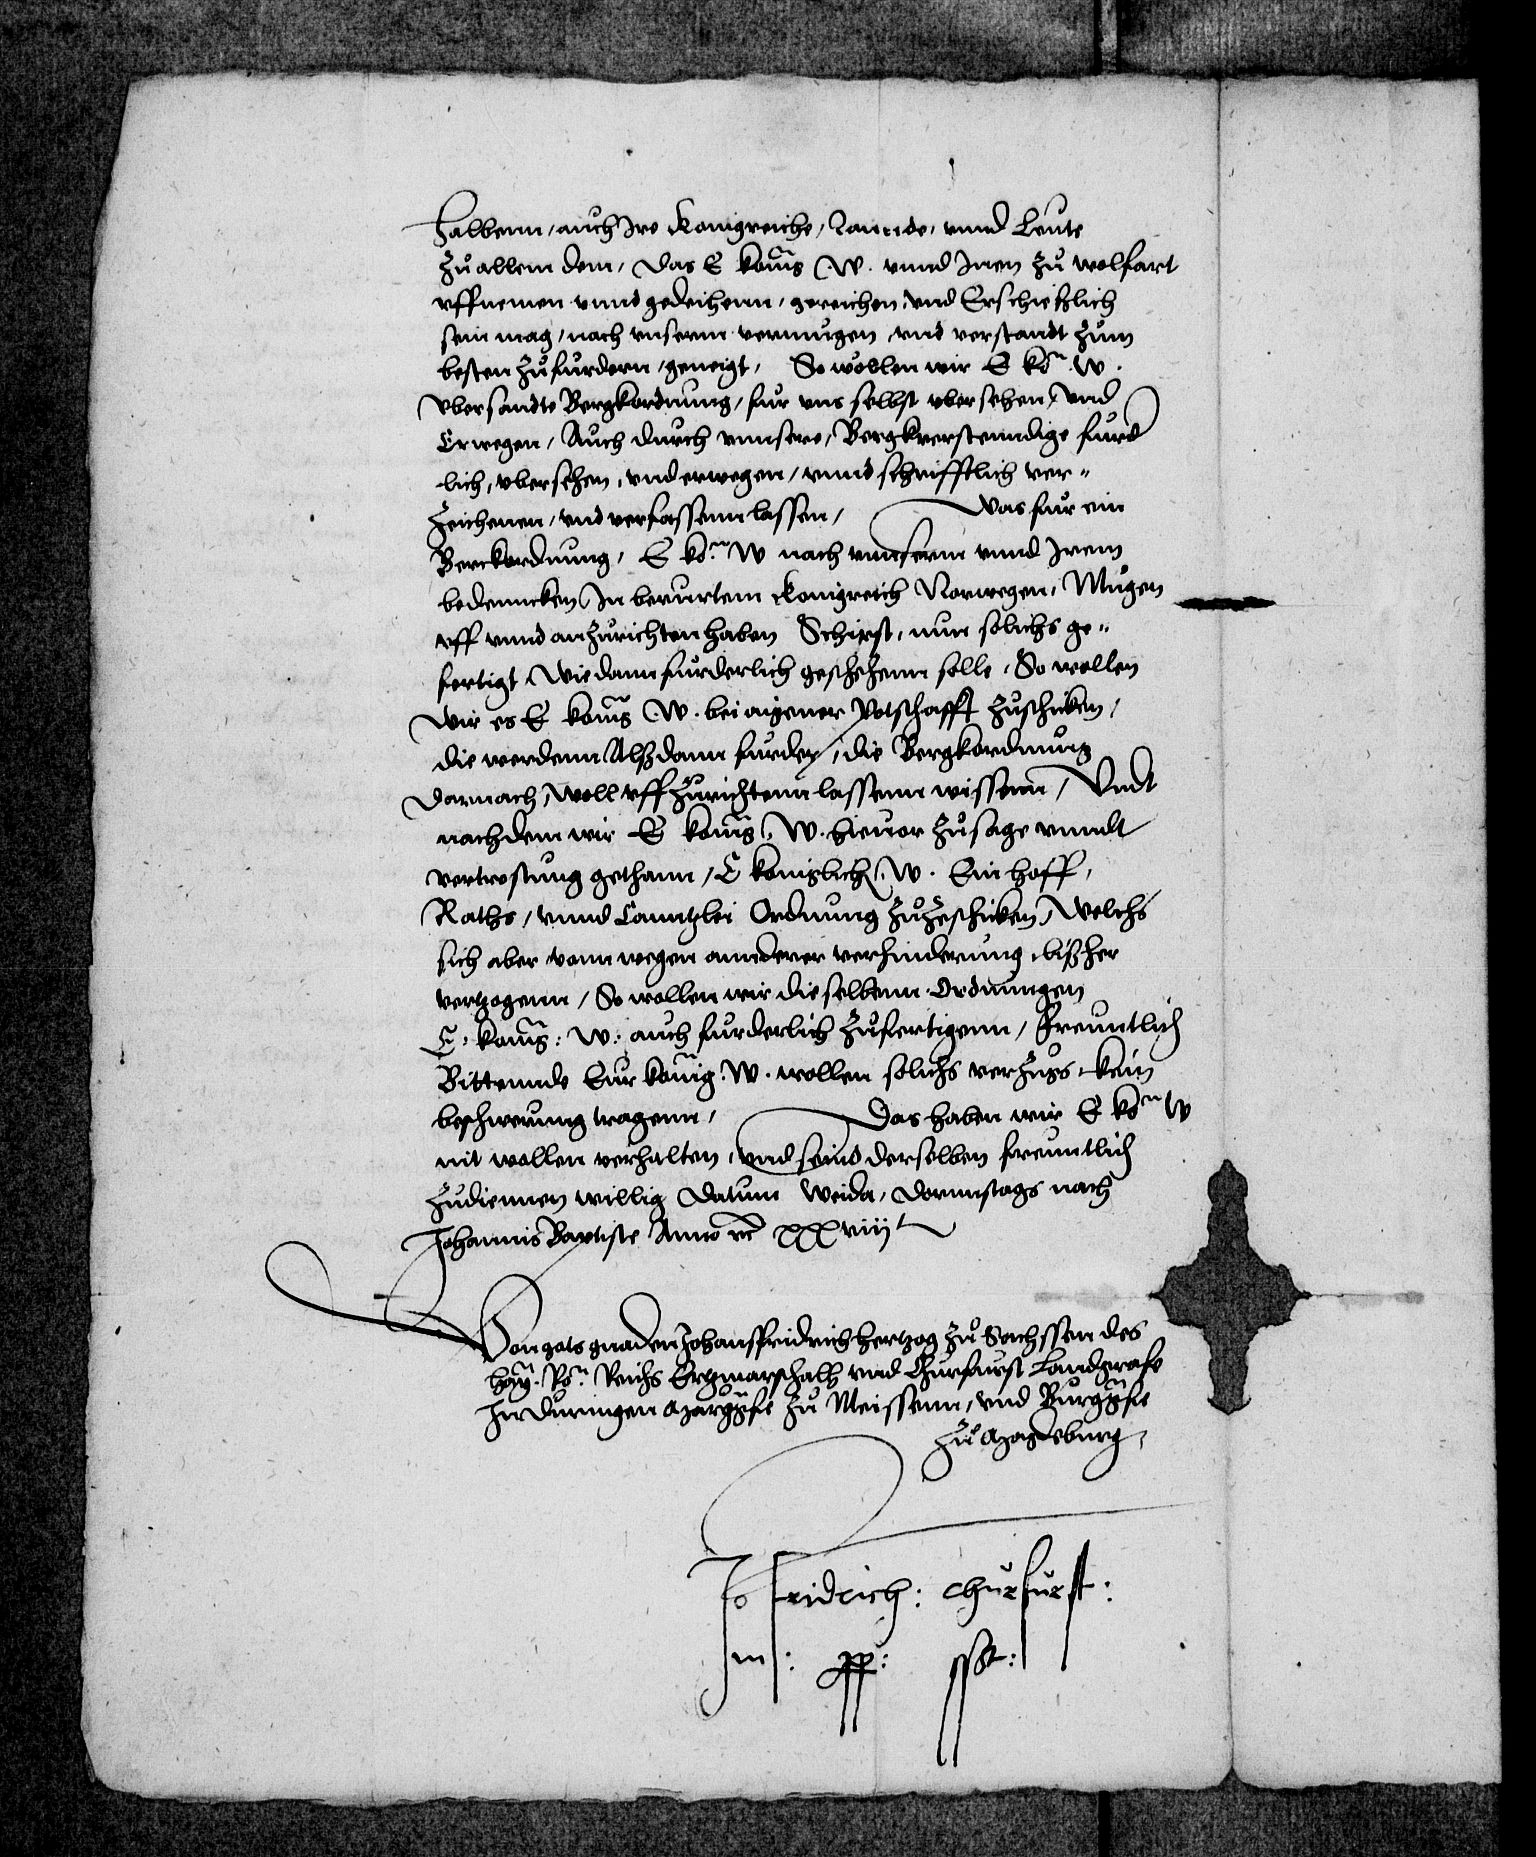 halbenn, auch Ire Konigreiche, Lannde, vnnd Leute
zu allem dem, das E konig W. vnnd Inen zu wolfart
vffnemen vnnd gedeihenn, gereichen vnd Erschießlich
sein mag, nach vnserm vermugen vnd verstandt zum
besten zufurdern, geneigt, So wollen wir E ko. W.
vbersandte Bergkordnung, fur vns selbst vbersehen, vnd
Erwegen, Auch durch vnnsere, Bergkverstenndige furd
lich, vbersehen, vnd erwegen, vnnd schrifftlich ver-
zeichenen, vnd verfassenn lassen, Was fur ein
Berckordnung, E ko. W nach vnnserm vnnd Irem
bedenncken In berurtem Konigreich Norwegen, Mugen
vff vnnd anzurichten haben Schirst, nun solichs ge-
fertigt, Wie dann furderlich geschehenn solle, So wollen
wir es E konig W. bei aigener Potschafft zuschicken,
die werdenn Alßdann furder, die Bergkordnung
darnach, woll vffzurichtenn lassenn wissenn, Vndt
nachdem wir E konig W. hieuor zusage vnndt
vertrostung gethann, E koniglich W. Ein hoff,
Raths, vnnd Canntzlei Ordnung zuzeschicken, Welchs
sich aber vonn wegen annderer verhinderung, bißher
vertzogenn, So wollen wir dieselbenn Ordnungen
E. konig: W: auch furderlich zufertigenn, Freuntlich
Bittennde Eur konig. W. wollen solichs verzugs, kein
beschwerung tragenn, Das haben wir E ko. W
nit wollen verhalten, vnd seind derselben freuntlich
zudiennen willig Datum Weida, Dornnstags nach
Johannis Baptiste Anno &c XXXviij
Von gots gnaden Johansfridrich hertzog zu Sachssen des
hay. Ro. Reichs Ertzmarschalh vnd Churfurst Landgrafe
In Duringen Marggrafe zu Meissenn, vnd Burggrafe
zu Magdeburg
Jo Fridrich: churfurst: